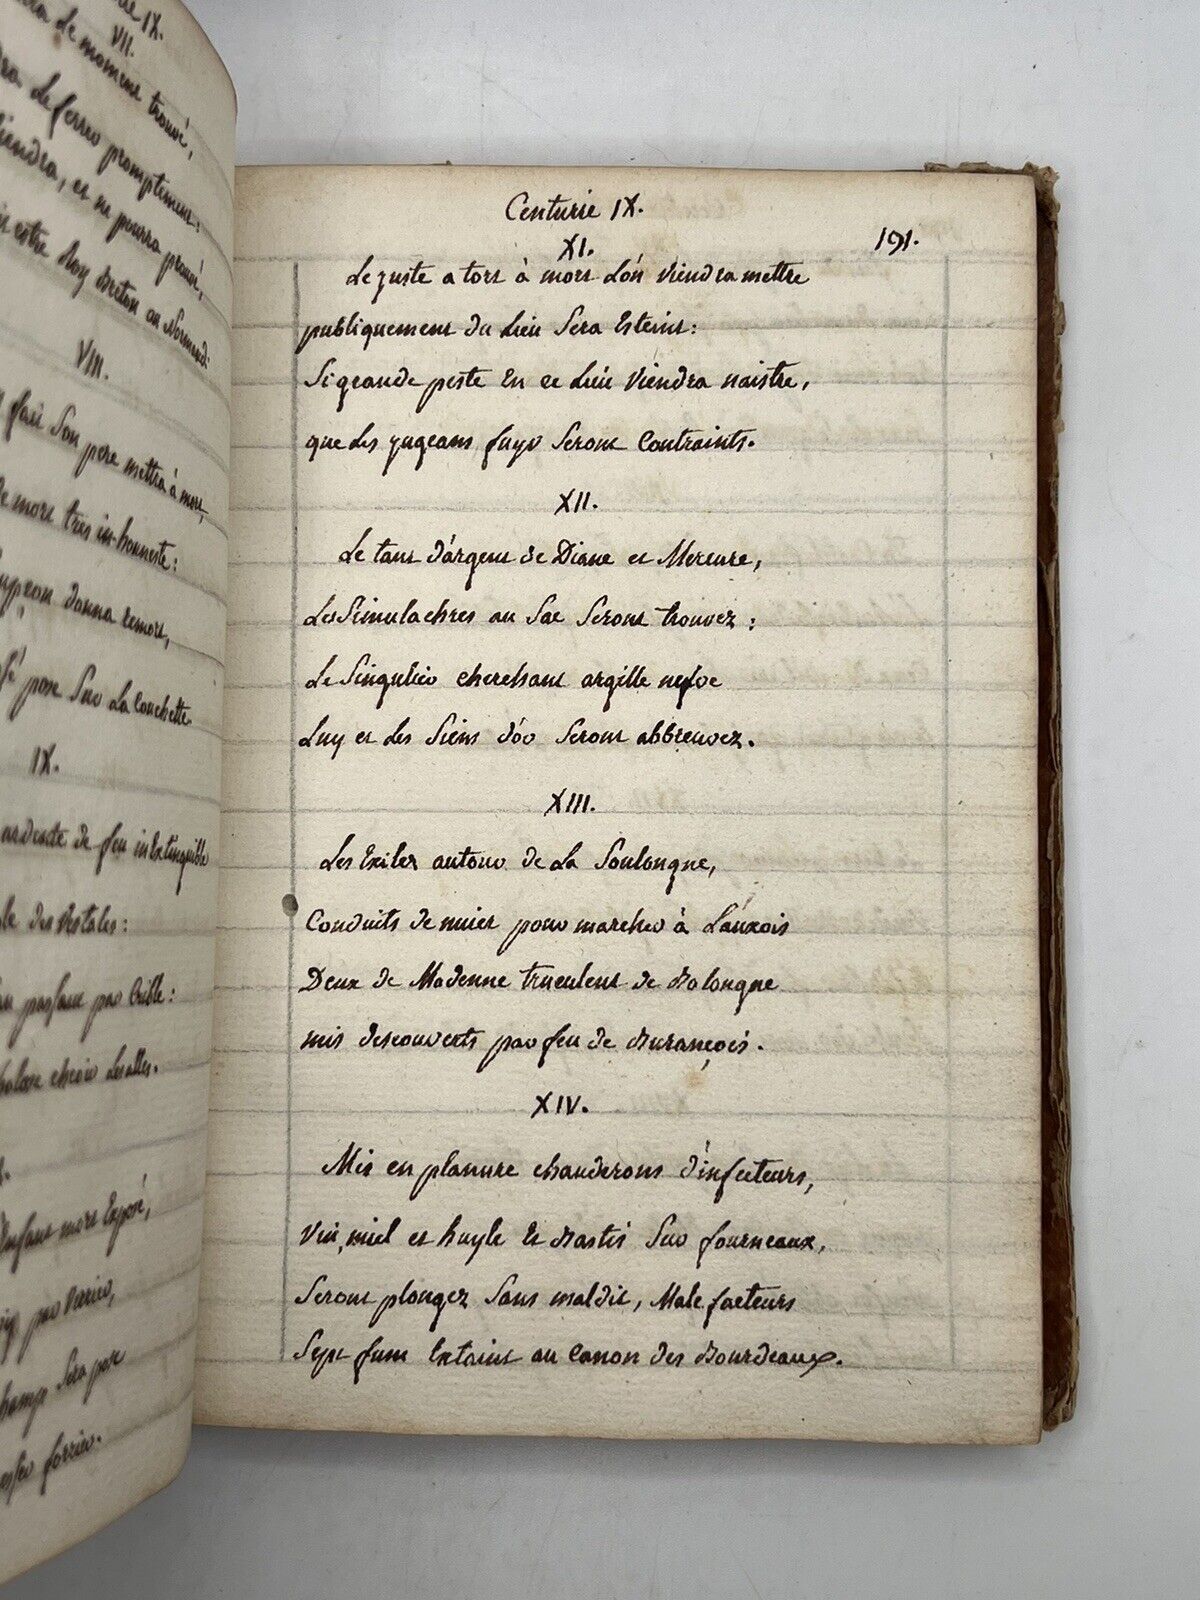 de moment trouvé,
VII.
promptement:
viendra, et ne pourra
estre Roy Breton ou Normend.
VIII.
fait Son pere mettra à mort,
de mort tres in-honneste:
donna remort,
pose Sur La Couchette
IX.
ardente de feu inExtinguible
des Vestales:
passant par Crible:
choir Lesalles.
Enfant mort Exposé,
par Verrier,
Sera pose
forrier.
Centurie IX.
191.
XI.
Le juste a tort à mort L'ón Viendra mettre
publiquement du Lieu Sera Esteint:
Si grande peste En ce Lieu Viendra naistre,
que Les jugeans fuyr Seront Contraints.
XII.
Le tant d'argent de Diane et Mercure,
Les Simulachres au Lac Seront trouvez:
Le Singulier cherchant argille nefve
Luy et Les Siens d'ór Seront abbreuvez.
XIII.
Les Exilez autour de La Soulongne,
Conduits de nuict pour marcher à L'auxois
Deux de Modenne truculent de Bolongne
mis descouverts par feu de Burançois.
XIV.
Mis en planure chauderons d'infecteurs,
Vin, miel et huyle Et Bastis Sur fourneaux,
Seront plongez Sans maldit, Malefacteurs
Sept fum Extaint au Canon des Bourdeaux.